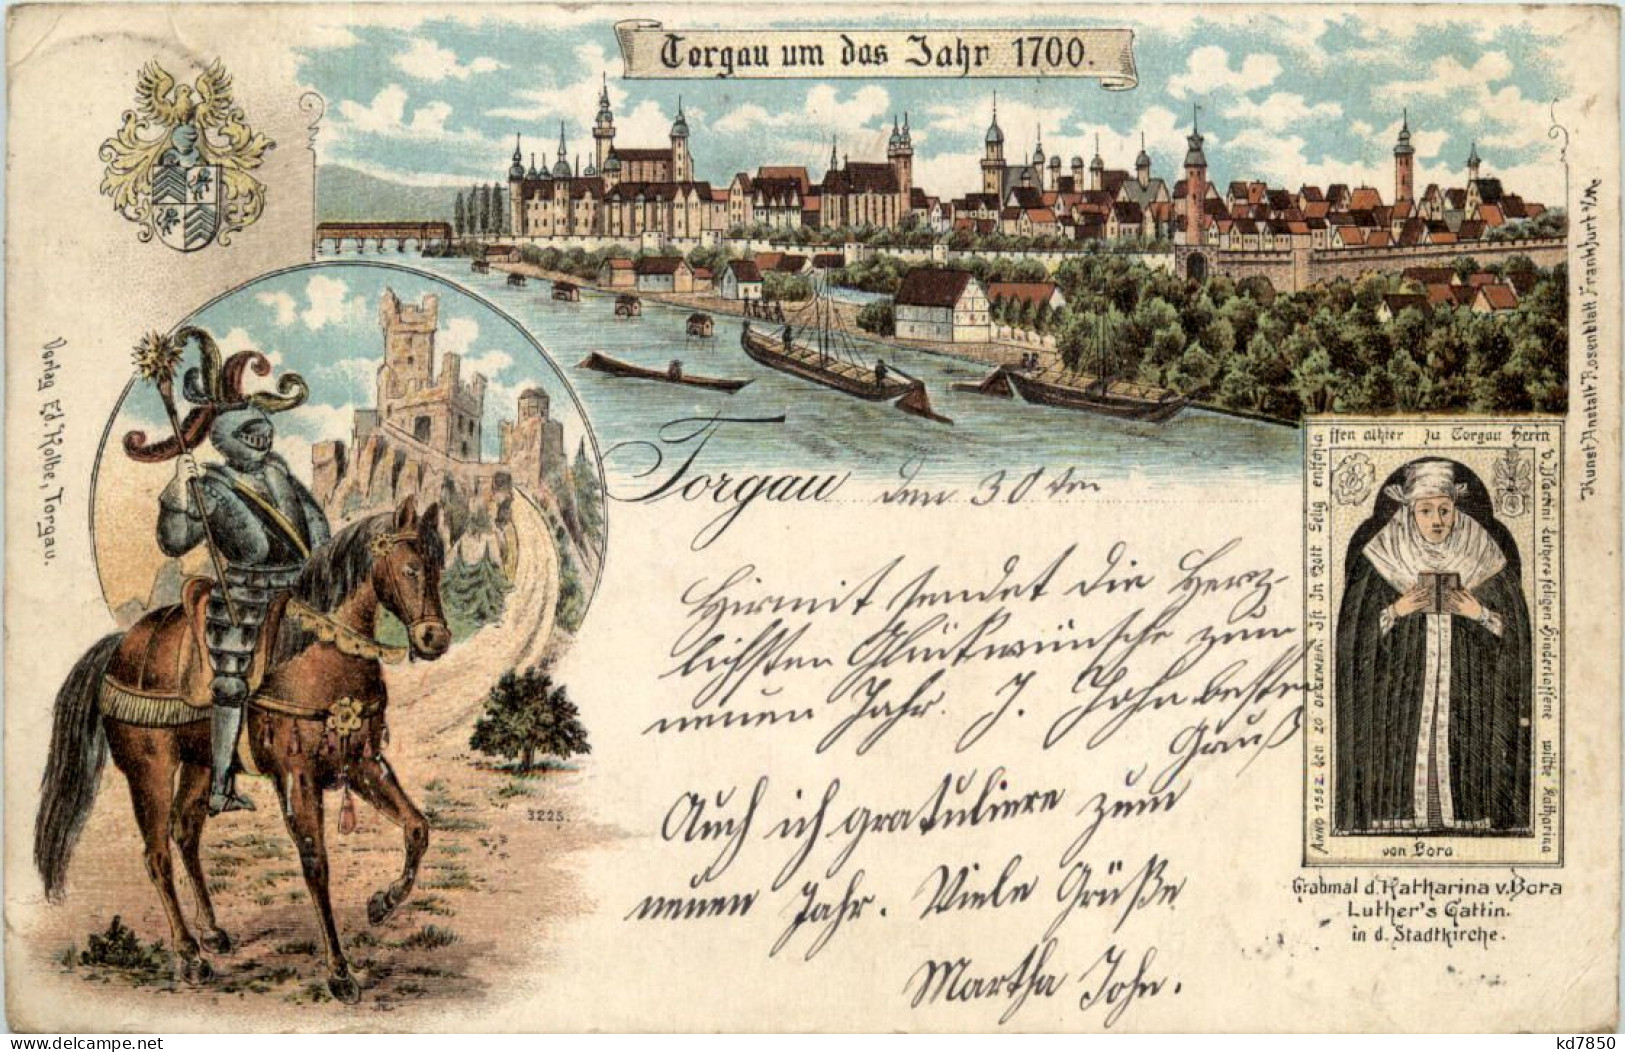 Torgau um das Jahr 1700.
Verlag Ed. Kolbe, Torgau.
Kunst-Anstalt Rosenblatt Frankfurt a/M.
Torgau den 30ten
Hiermit sendet die Herz-
lichsten Glückwünsche zum
neuen Jahr. J. John besten
Gruß
Auch ich gratuliere zum
neuen Jahr. Viele Grüße
Martha John.
3225.
ANNO 1552 den 20 DECEMBR. Ist In Gott Selig entschla
ffen alhier zu Torgau Herrn
D. Martini Luthers seligen Hinderlassene wittbe Katharina
von Bora
Grabmal d. Katharina v. Bora
Luther's Gattin.
in d. Stadtkirche.
kd7850